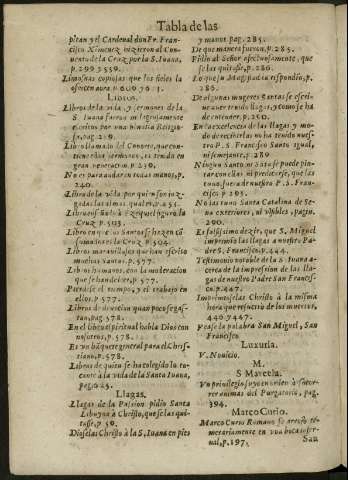 Tabla de las
pitan y el Cardenal don Fr. Fran-
cisco Ximenez hizieron al Con-
uento de la Cruz por la S. Iuana,
p. 299 y 559.
Limosnas copiosas que los fieles la
LIBROS.
Libros de la vida, y sermones de la
S. Iuana fueron milagrosamente
escritos por una
Libro llamado del Conorte, que con-
tiene los sermones, es tenido en
gran veneracion, p. 239.
No es para andar en todas manos, p.
240.
Libro de la vida por quien son juz-
gadas las almas qual es. p. 255.
Libro enseñado à Ezequiel figurò la
Cruz. p. 503.
Libro en que los Santos se hazen
santos es la Cruz. p. 504.
Libros marauillosos que han escrito
muchos Santos. p. 577.
Libros humanos, con la moderacion
que se han de leer, p. 577.
Pierdese el tiempo, y el trabajo en
ellos. p. 577.
Libros de deuocion quan poco se gas-
tan, pag. 578.
En el libro espiritual habla Dios con
nosotros, p. 578.
Es un baquete general para el Chris-
tiano, p. 578.
Libros de quien se ha colegido lo to-
cante à la vida de la Santa Iuana,
Llagas.
Llagas de la Passion pidio Santa
à Christo, que se las qui-
tasse, p. 50.
Dioselas Christo à la S. Iuana en pies
y manos pag. 285.
De que manera fueron, p. 285.
Pidio al Señor afectuosamente, que
se las quitasse, p. 286.
Lo que su Magestad la respondio, p.
286.
De algunas mugeres Santas se escri-
ue auer tenido llagas, y como se ha
de entender, p. 250.
En la excelencia de las llagas, y modo
de recebirlas no ha tenido nues-
tro P. S. Francisco igual,
ni semejante, p. 289
Ningun Santo ni Santa se puede pin-
tar con ellas ni predicarse, que las
tuuo, fuera de nuestro P. S. Fran-
cisco. p. 293.
No las tuuo Santa Catalina de Se-
na exteriores, ni visibles, pagin.
290.
Es falsissimo dezir, que S. Miguel
imprimio las llagas a nuestro Pa-
dre S. Francisco. p. 444.
Testimonio notable de la S. Iuana a-
cerca de la impression de las lla-
gas de nuestro Padre San Francis-
co. p. 447.
Imprimioselas Christo à la misma
hora que resucitò de los muertos,
440. y 447.
Vease la palabra San Miguel, San
Francisco.
Luxuria.
V. Nouicio.
M.
S. Marcela.
Vn priuilegio suyo en orden à
rer animas del Purgatorio, pag.
394.
Marco Curio.
Marco Curio Romano se arrojò te-
merariamente en una boca infer-
nal, p. 197.
San